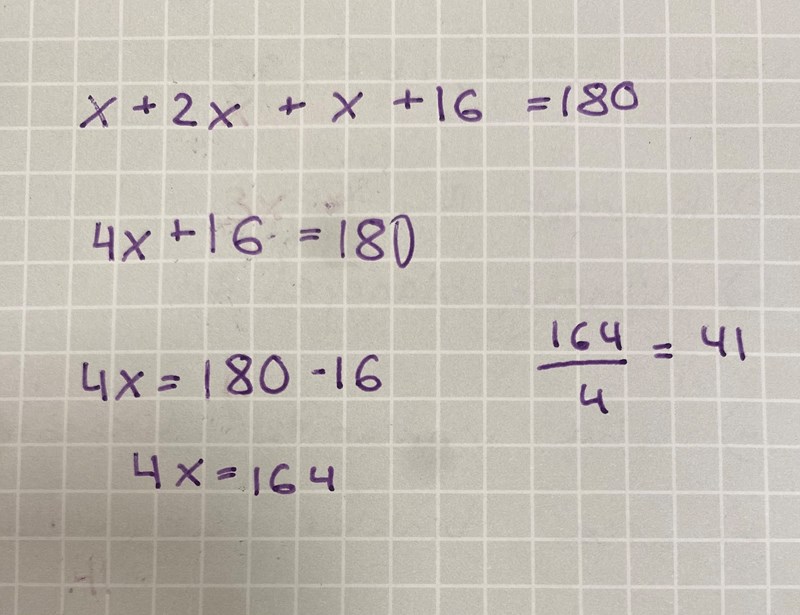 x + 2x + x + 16 = 180
4x + 16 = 180
4x = 180 - 16
4x = 164
164/4 = 41